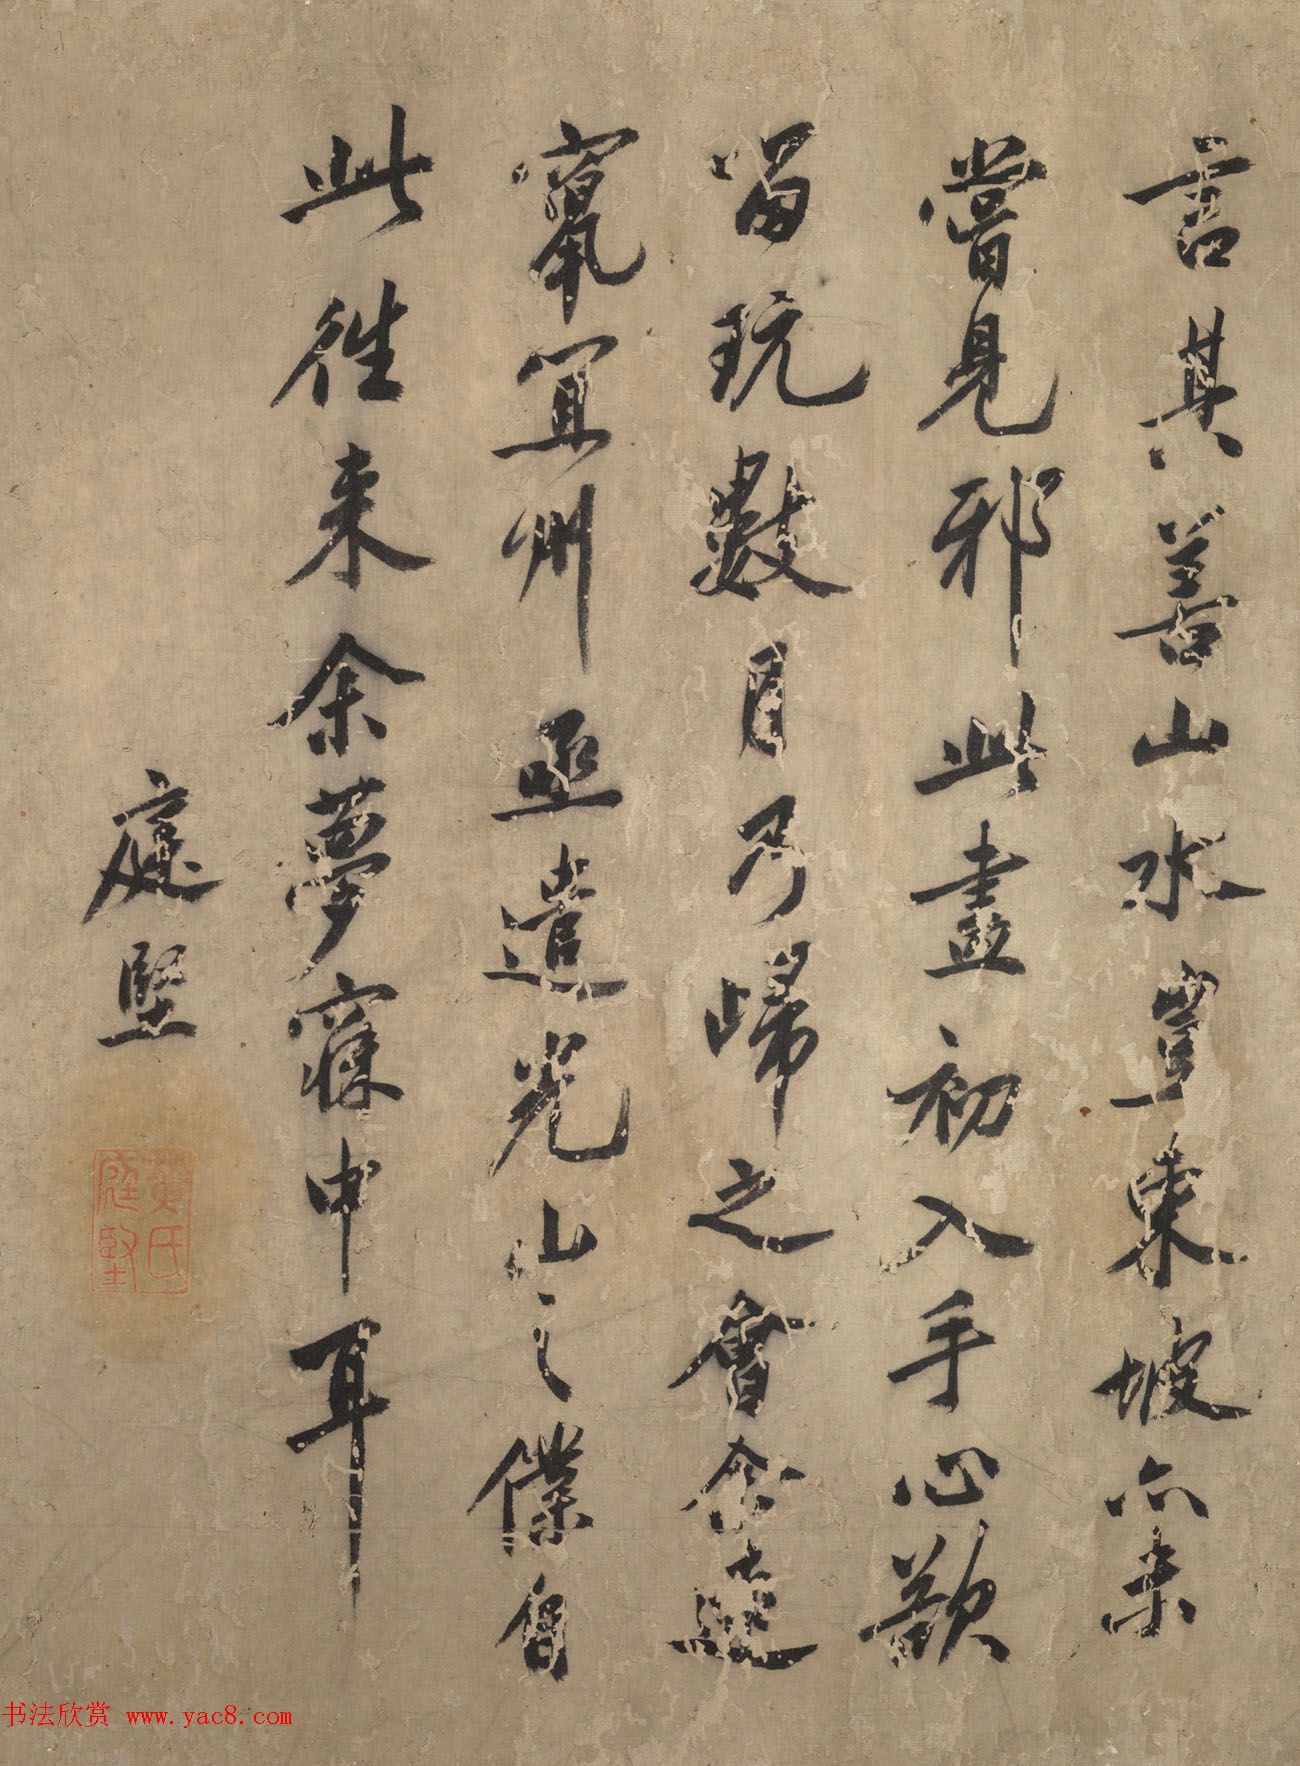 言其善山水豈東坡亦未
嘗見邪此畫初入手心欲
留玩數月乃歸之會余遷
竄宜州亟遣光山之僕自
此往来余夢寐中耳
庭堅
黄氏庭堅
书法欣赏 www.yac8.com